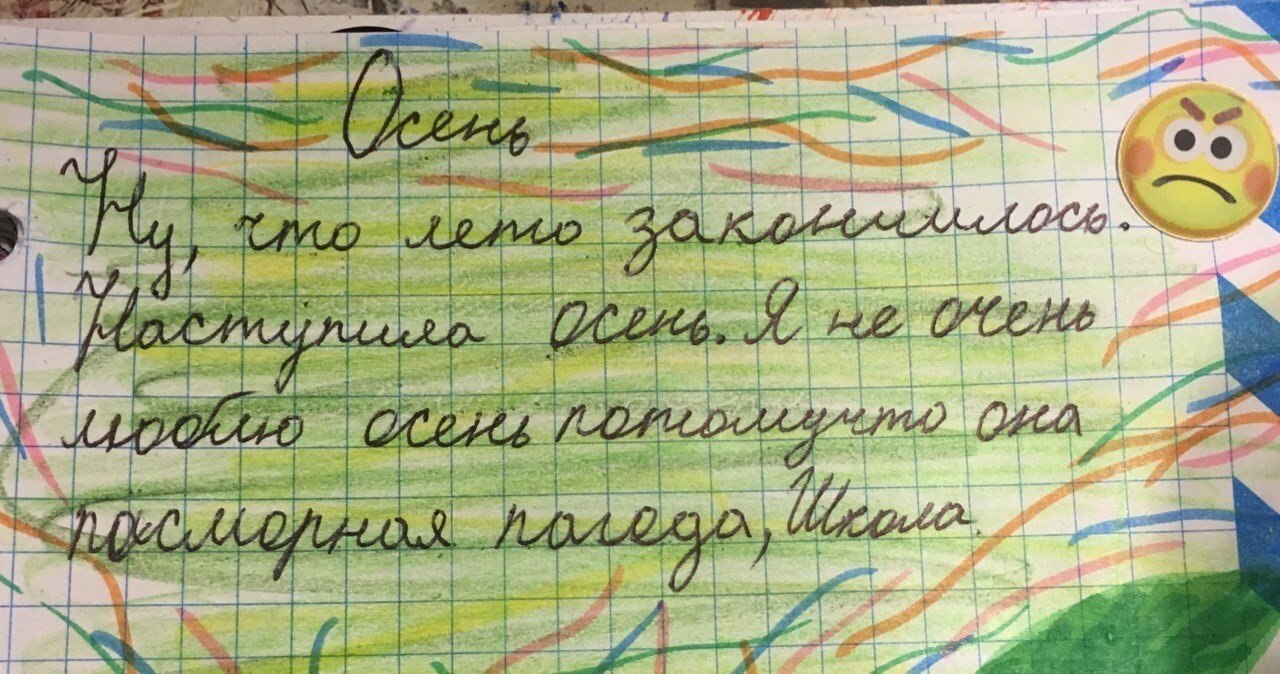 Осень
Ну, что лето закончилось.
Наступила осень. Я не очень
люблю осень потомучто она
пасморная пагода, Школа